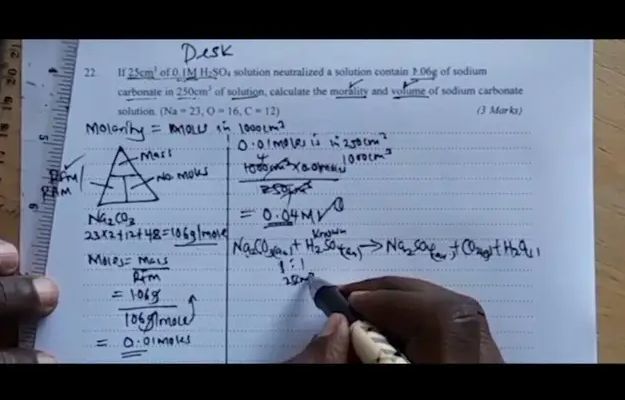 Desk
22. If 25cm³ of 0.1M H₂SO₄ solution neutralized a solution contain 1.06g of sodium
carbonate in 250cm³ of solution, calculate the morality and volume of sodium carbonate
solution. (Na = 23, O = 16, C = 12) (3 Marks)
Molarity = moles in 1000cm³
Mass
RFM/
RAM
No moles
Na₂CO₃
23×2+12+48=106g/mole
Moles = mass
RFM
= 1.06g
106g/mole
= 0.01moles
0.01moles is in 250cm³
1000cm³
4
1000cm³ × 0.01moles
250cm³
= 0.04M
known
Na₂CO₃(aq) + H₂SO₄(aq) → Na₂SO₄(aq) + CO₂(g) + H₂O(l)
1 : 1